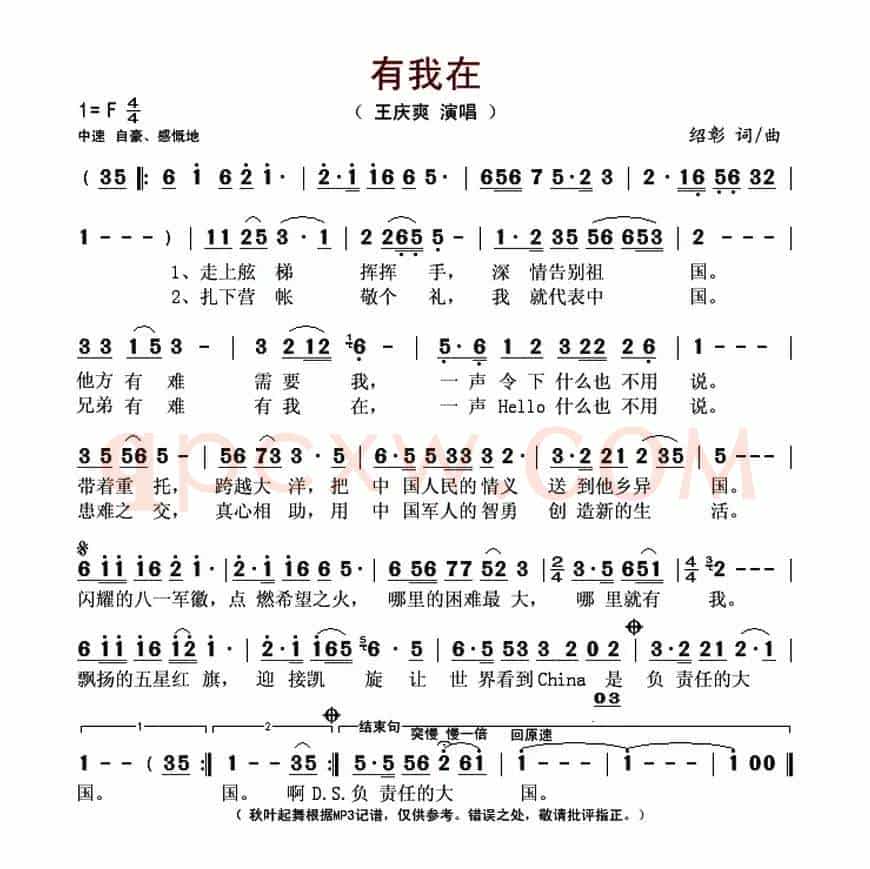 有我在
1= F 4/4
( 王庆爽 演唱 )
中速 自豪、感慨地
绍彰 词/曲
( 35 ‖: 6 1 6 2 1 · | 2 · 1 16 6 5 · | 656 7 5 · 2 3 | 2 · 16 56 32 |
1 - - - ) | 11 25 3 · 1 | 2 265 5 - | 1 · 2 35 56 653 | 2 - - - |
1、走上舷 梯 挥挥 手, 深 情告别祖 国。
2、扎下营 帐 敬个 礼, 我 就代表中 国。
3 3 1 5 3 - | 3 2 12 1 6 - | 5 · 6 1 2 3 22 2 6 | 1 - - - |
他方 有 难 需 要 我, 一 声 令 下 什么也 不用 说。
兄弟 有 难 有 我 在, 一 声 Hello 什么也 不用 说。
3 5 56 5 - | 56 73 3 · 5 | 6 · 5 5 33 3 2 · | 3 · 2 21 2 35 | 5 - - - |
带着重 托, 跨越大 洋, 把 中 国人民的 情义 送 到他乡异 国。
患难之 交, 真心相 助, 用 中 国军人的 智勇 创 造新的生 活。
qpcxw.com
6 11 16 2 1 · | 2 · 1 16 6 5 · | 6 56 77 52 3 · | 2/4 3 · 5 651 | 4/4 3 2 - - - |
闪耀的八一军徽, 点 燃希望之火, 哪里的困难最 大, 哪 里就有 我。
6 11 16 12 1 · | 2 · 1 165 5 6 · 5 | 6 · 5 53 3 2 0 2 | 3 · 2 21 2 · 1 |
飘扬的五星红 旗, 迎 接凯 旋 让 世 界看到China 是 负 责任的大
03
1 2 结束句 突慢 慢一倍 回原速
1 - - ( 35 :‖ 1 - - 35 :‖ 5 · 5 56 2 61 | 1 - - - | 1 - - - | 1 00 ‖
国。 国。 啊 D.S.负 责任的大 国。
( 秋叶起舞根据MP3记谱，仅供参考。错误之处，敬请批评指正。)